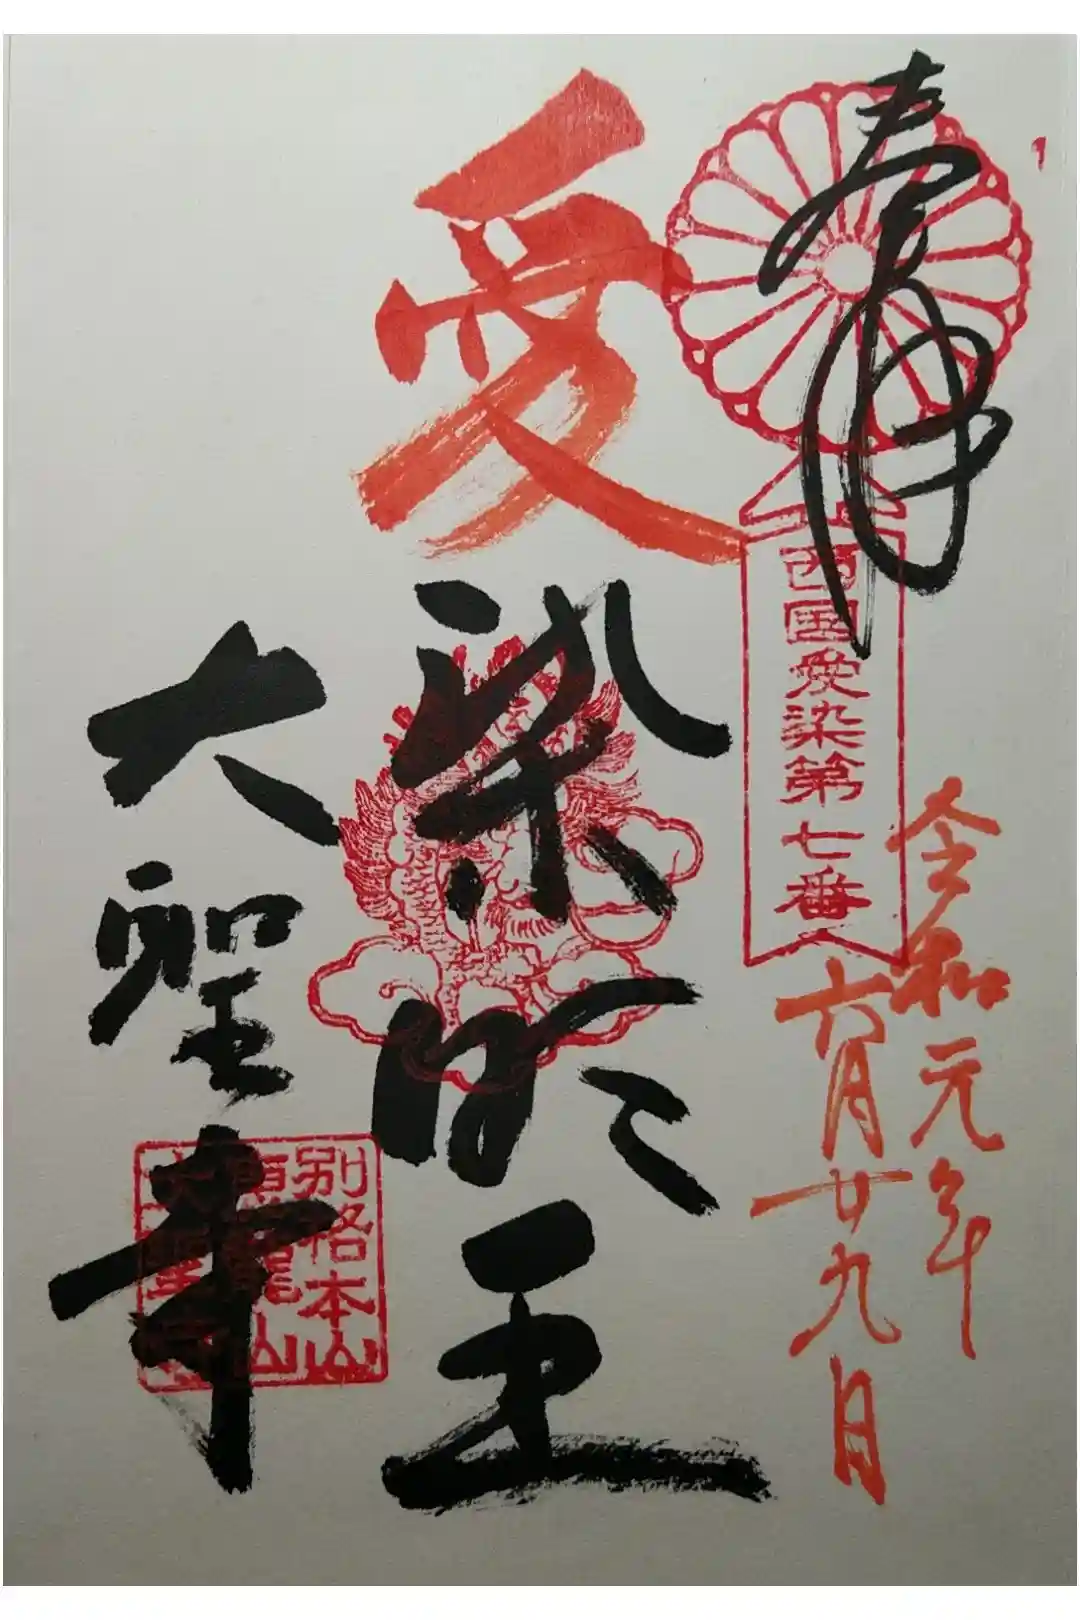 奉拝
西国愛染第七番
令和元年
六月廿九日
愛染明王
大聖寺
別格本山
恵龍山
大聖寺